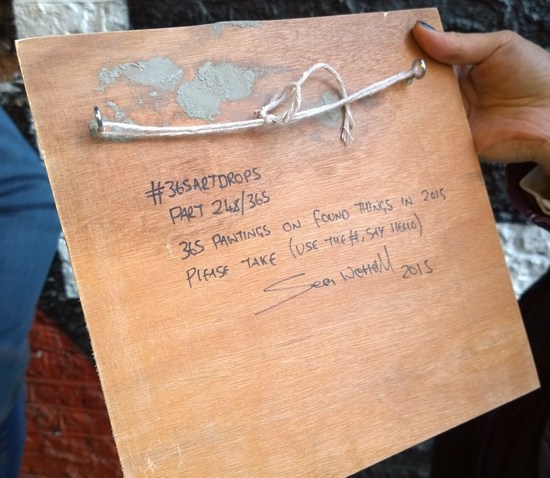 #365ARTDROPS
PART 248/365
365 PAINTINGS ON FOUND THINGS IN 2015
PLEASE TAKE (USE THE #, SAY HELLO)
Sean Worrall 2015